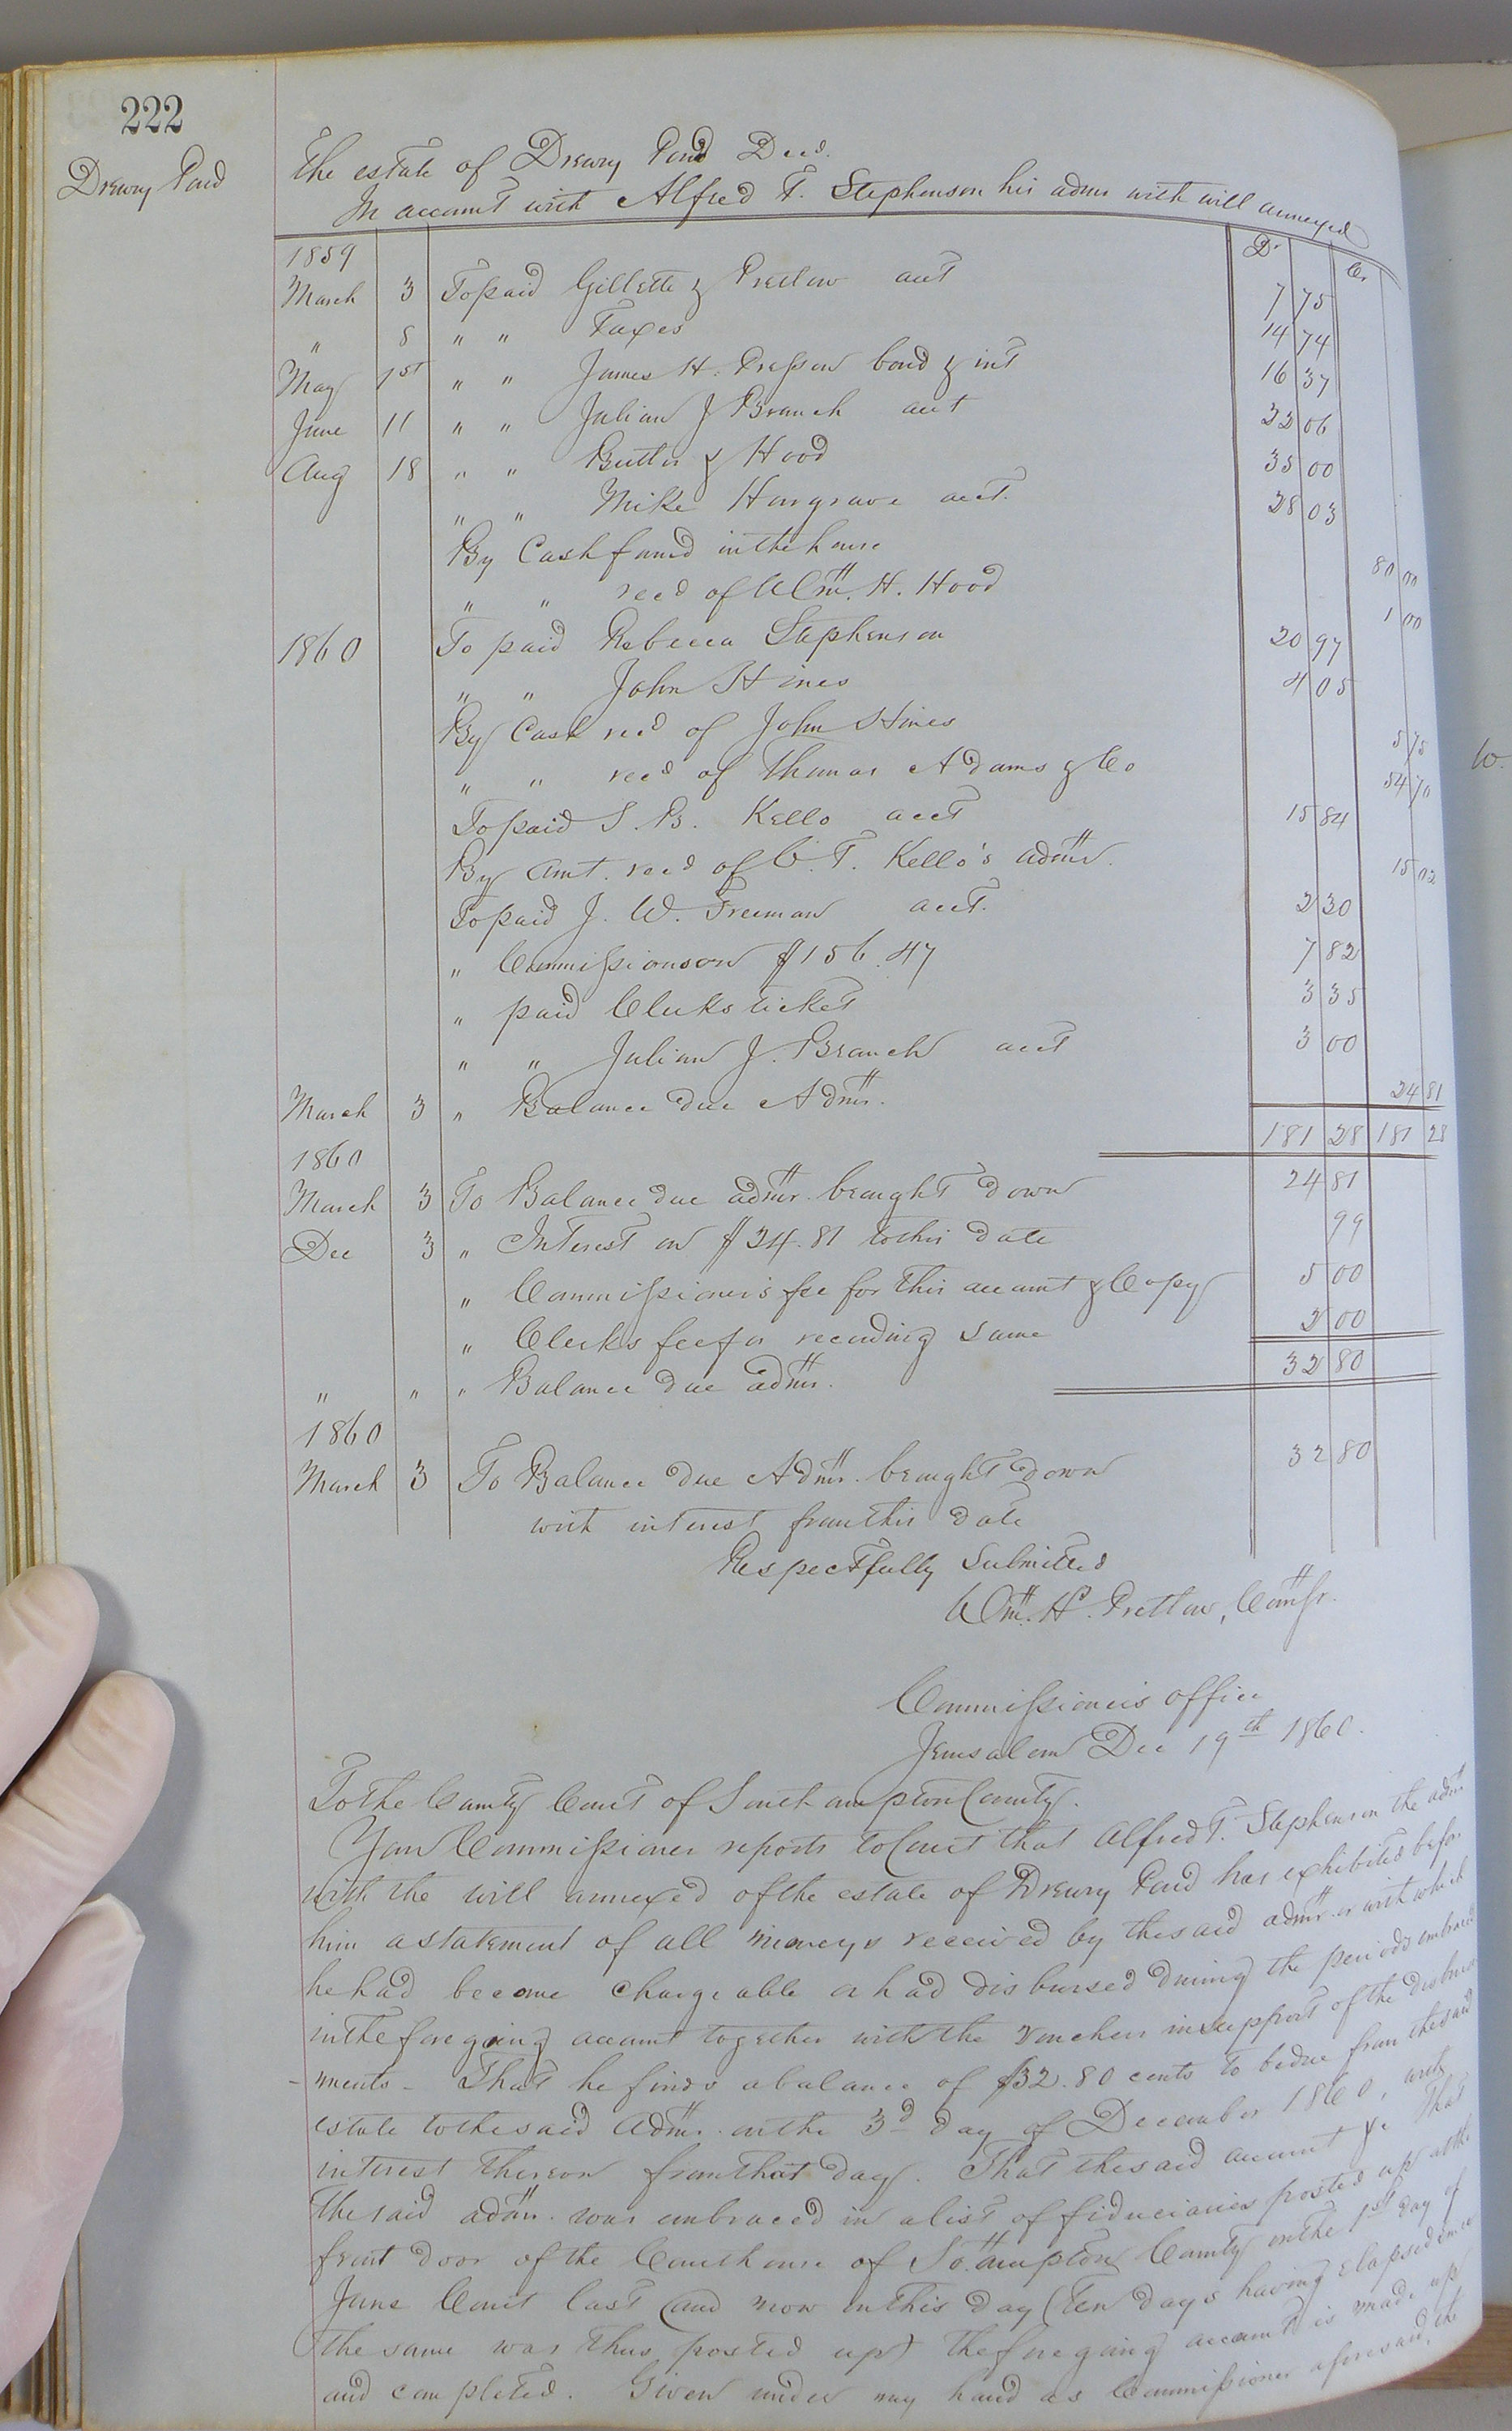 222
Drewry Pond
The estate of Drewry Pond Decd.
In account with Alfred T. Stephenson his admr with will annexed
Dr Cr
1859
March 3 To paid Gillette & Pretlow acct 7 75
" 8 " " Taxes 14 74
May 1st " " James H. Presson bond & int 16 37
June 11 " " Julian J Branch acct 22 06
Aug 18 " " Butler & Hood 35 00
" " Mike Hargrave acct. 28 03
By Cash found in the house 80 00
" " recd of Wm. H. Hood 1 00
1860 To paid Rebecca Stephenson 20 97
" " John Hines 4 05
By Cash recd of John Hines 5 75
" " recd of Thomas Adams & Co 54 70
To paid S. B. Kello acct 15 84
By amt. recd of C. T. Kello's admr. 15 02
To paid J. W. Freeman acct. 2 30
" Commissions on $156.47 7 82
" paid Clerks ticket 3 35
" " Julian J. Branch acct 3 00
March 3 " Balance due Admr. 24 81
181 28 181 28
1860
March 3 To Balance due admr. brought down 24 81
Dec 3 " Interest on $24.81 to this date 99
" Commissioner's fee for this account & Copy 5 00
" Clerks fee for recording same 2 00
32 80
" " " Balance due admr.
1860
March 3 To Balance due Admr. brought down 32 80
with interest from this date
Respectfully Submitted
Wm. H. Pretlow, Comsr.
Commissioner's office
Jerusalem Dec 19th 1860.
To the County Court of Southampton County.
Your Commissioner reports to Court that Alfred T. Stephenson the admr
with the will annexed of the estate of Drewry Pond has exhibited before
him a statement of all moneys received by the said admr. or with which
he had become chargeable or had disbursed during the periods embraced
in the foregoing account together with the vouchers in support of the disburse
-ments - That he finds a balance of $32.80 cents to be due from the said
estate to the said Admr. on the 3d day of December 1860, with
interest thereon from that day. That the said account &c That
the said admr. was embraced in a list of fiduciaries posted up at the
front door of the Courthouse of So.ampton County on the 1st day of
June Court last (and now on this day (ten days having elapsed since
the same was thus posted up) the foregoing account is made up
and completed. Given under my hand as Commissioner aforesaid, the